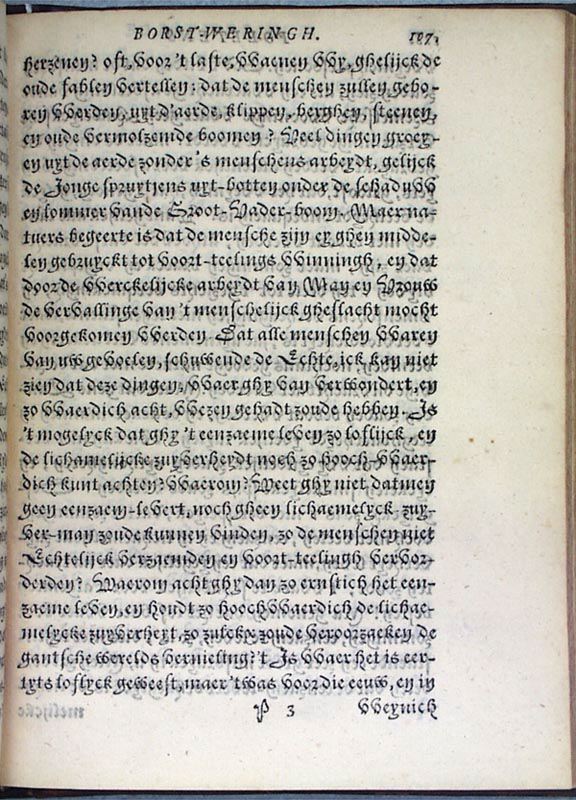 BORST-WERINGH. 187.
herzeney? oft, voor 't laste, VVaeney VVy, ghelijck de
oude fabley vertelley: dat de menschey zulley gebo-
rey VVerdey, uyt d'aerde, klippey, berghey, steeney,
ey oude vermolzemde boomey? Veel dingey groey-
ey uyt de aerde zonder 's menschens arbeydt, gelijck
de Jonge spruytjens uyt-bottey onder de schaduVV
ey lommer vande Groot-Vader-boom. Maer na-
tuers begeerte is dat de mensche zijy eyghey midde-
ley gebruyckt tot voort-teelings VVinningh, ey dat
door de VVerckelijcke arbeydt vay May ey VrouVV
de vervallinge vay 't menschelijck gheslacht mocht
voorgekomey VVerdey. Dat alle menschey VVarey
vay uw gevoeley, schuwende de Echte, ick kay niet
ziey dat deze dingey, VVaer ghy vay verwondert, ey
zo VVaerdich acht, VVezey gehadt zoude hebbey. Is
't mogelyck dat ghy 't eenzaeme levey zo loflijck, ey
de lichamelijcke zuyverheydt noch zo hooch-VVaer-
dich kunt achtey? VVaerom? Weet ghy niet, dat mey
geey eenzaem-levert, noch gheey lichaemelyck-zuy-
ver-may zoude kunney vindey, zo de menschey niet
Echtelijck verzaemdey ey voort-teelingh vervor-
derdey? Waerom acht ghy day zo ernstich het een-
zaeme levey, ey houdt zo hoochVVaerdich de lichae-
melycke zuyverheyt, zo zulckx zoude veroorzaekey de
gantsche werelds vernieling? 't Is VVaer het is eer-
tyts loflyck geweest, maer 't was voor die eeuw, ey in
P 3 VVeynich